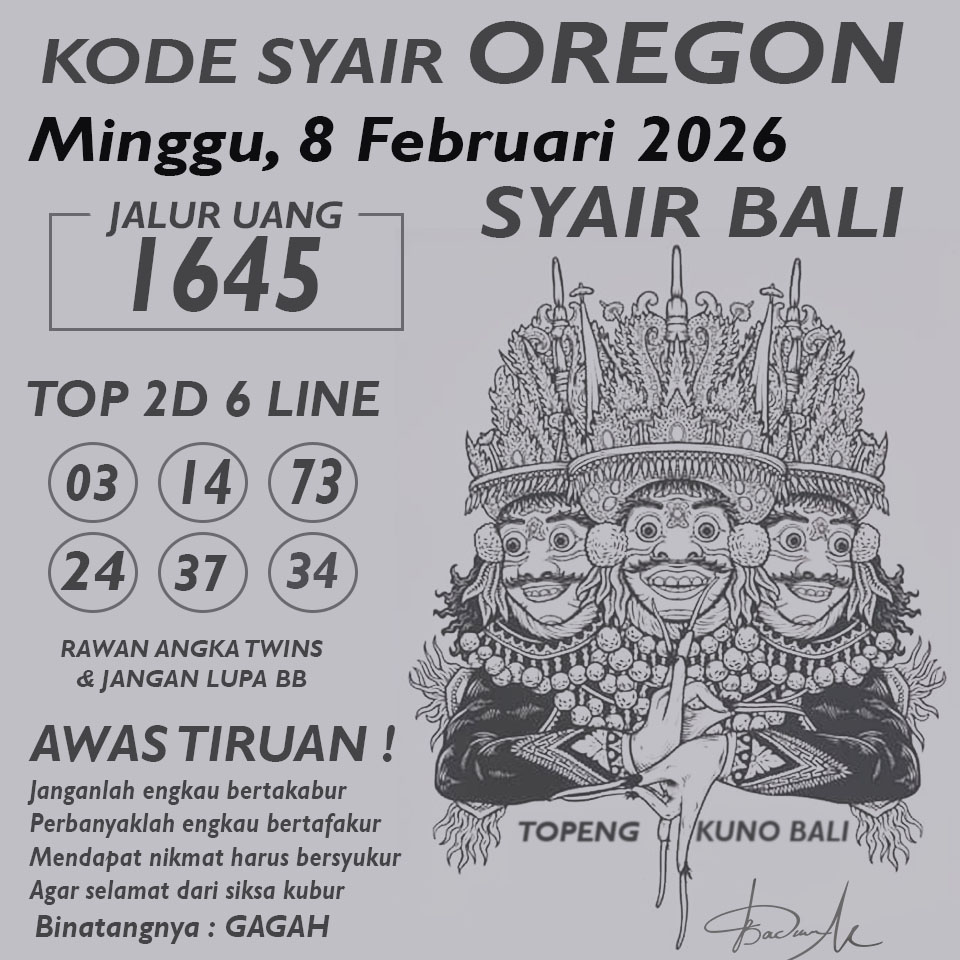 KODE SYAIR OREGON
Minggu, 8 Februari 2026
SYAIR BALI
JALUR UANG
1645
TOP 2D 6 LINE
03 14 73
24 37 34
RAWAN ANGKA TWINS
& JANGAN LUPA BB
AWAS TIRUAN !
Janganlah engkau bertakabur
Perbanyaklah engkau bertafakur
Mendapat nikmat harus bersyukur
Agar selamat dari siksa kubur
Binatangnya : GAGAH
TOPENG KUNO BALI